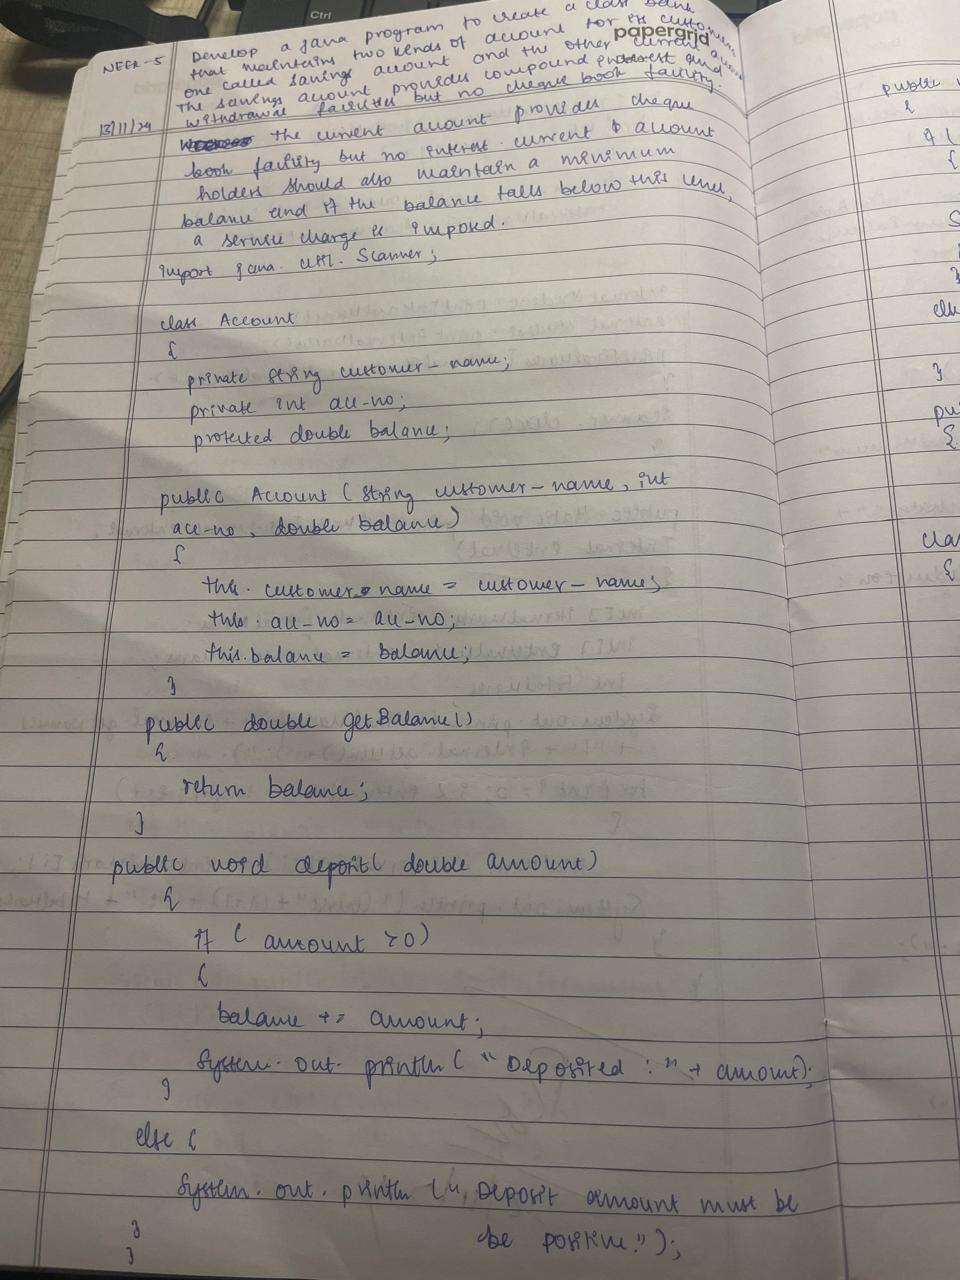 Ctrl
papergrid
WEEK-5 Develop a java program to create a class bank
that maintains two kinds of account for its customers
one called savings account and the other current
The savings account provides compound interest and
withdrawal facilities but no cheque book facility.
13/11/24
the current account provides cheque
book facility but no interest. current account
holders should also maintain a minimum
balance and if the balance falls below this level,
a service charge is imposed.
import java. util. Scanner;
class Account
{
private String customer-name;
private int acc-no;
protected double balance;
public Account (String customer-name, int
acc-no, double balance)
{
this. customer-name = customer-name;
this. acc-no = acc-no;
this.balance = balance;
}
public double getBalance()
{
return balance;
}
public void deposit( double amount)
{
if ( amount >0)
{
balance += amount;
System. out. println ( "Deposited :" + amount);
}
else {
System. out. println (" Deposit amount must be
be positive.");
}
}
public
{
{
}
}
{
cla
{